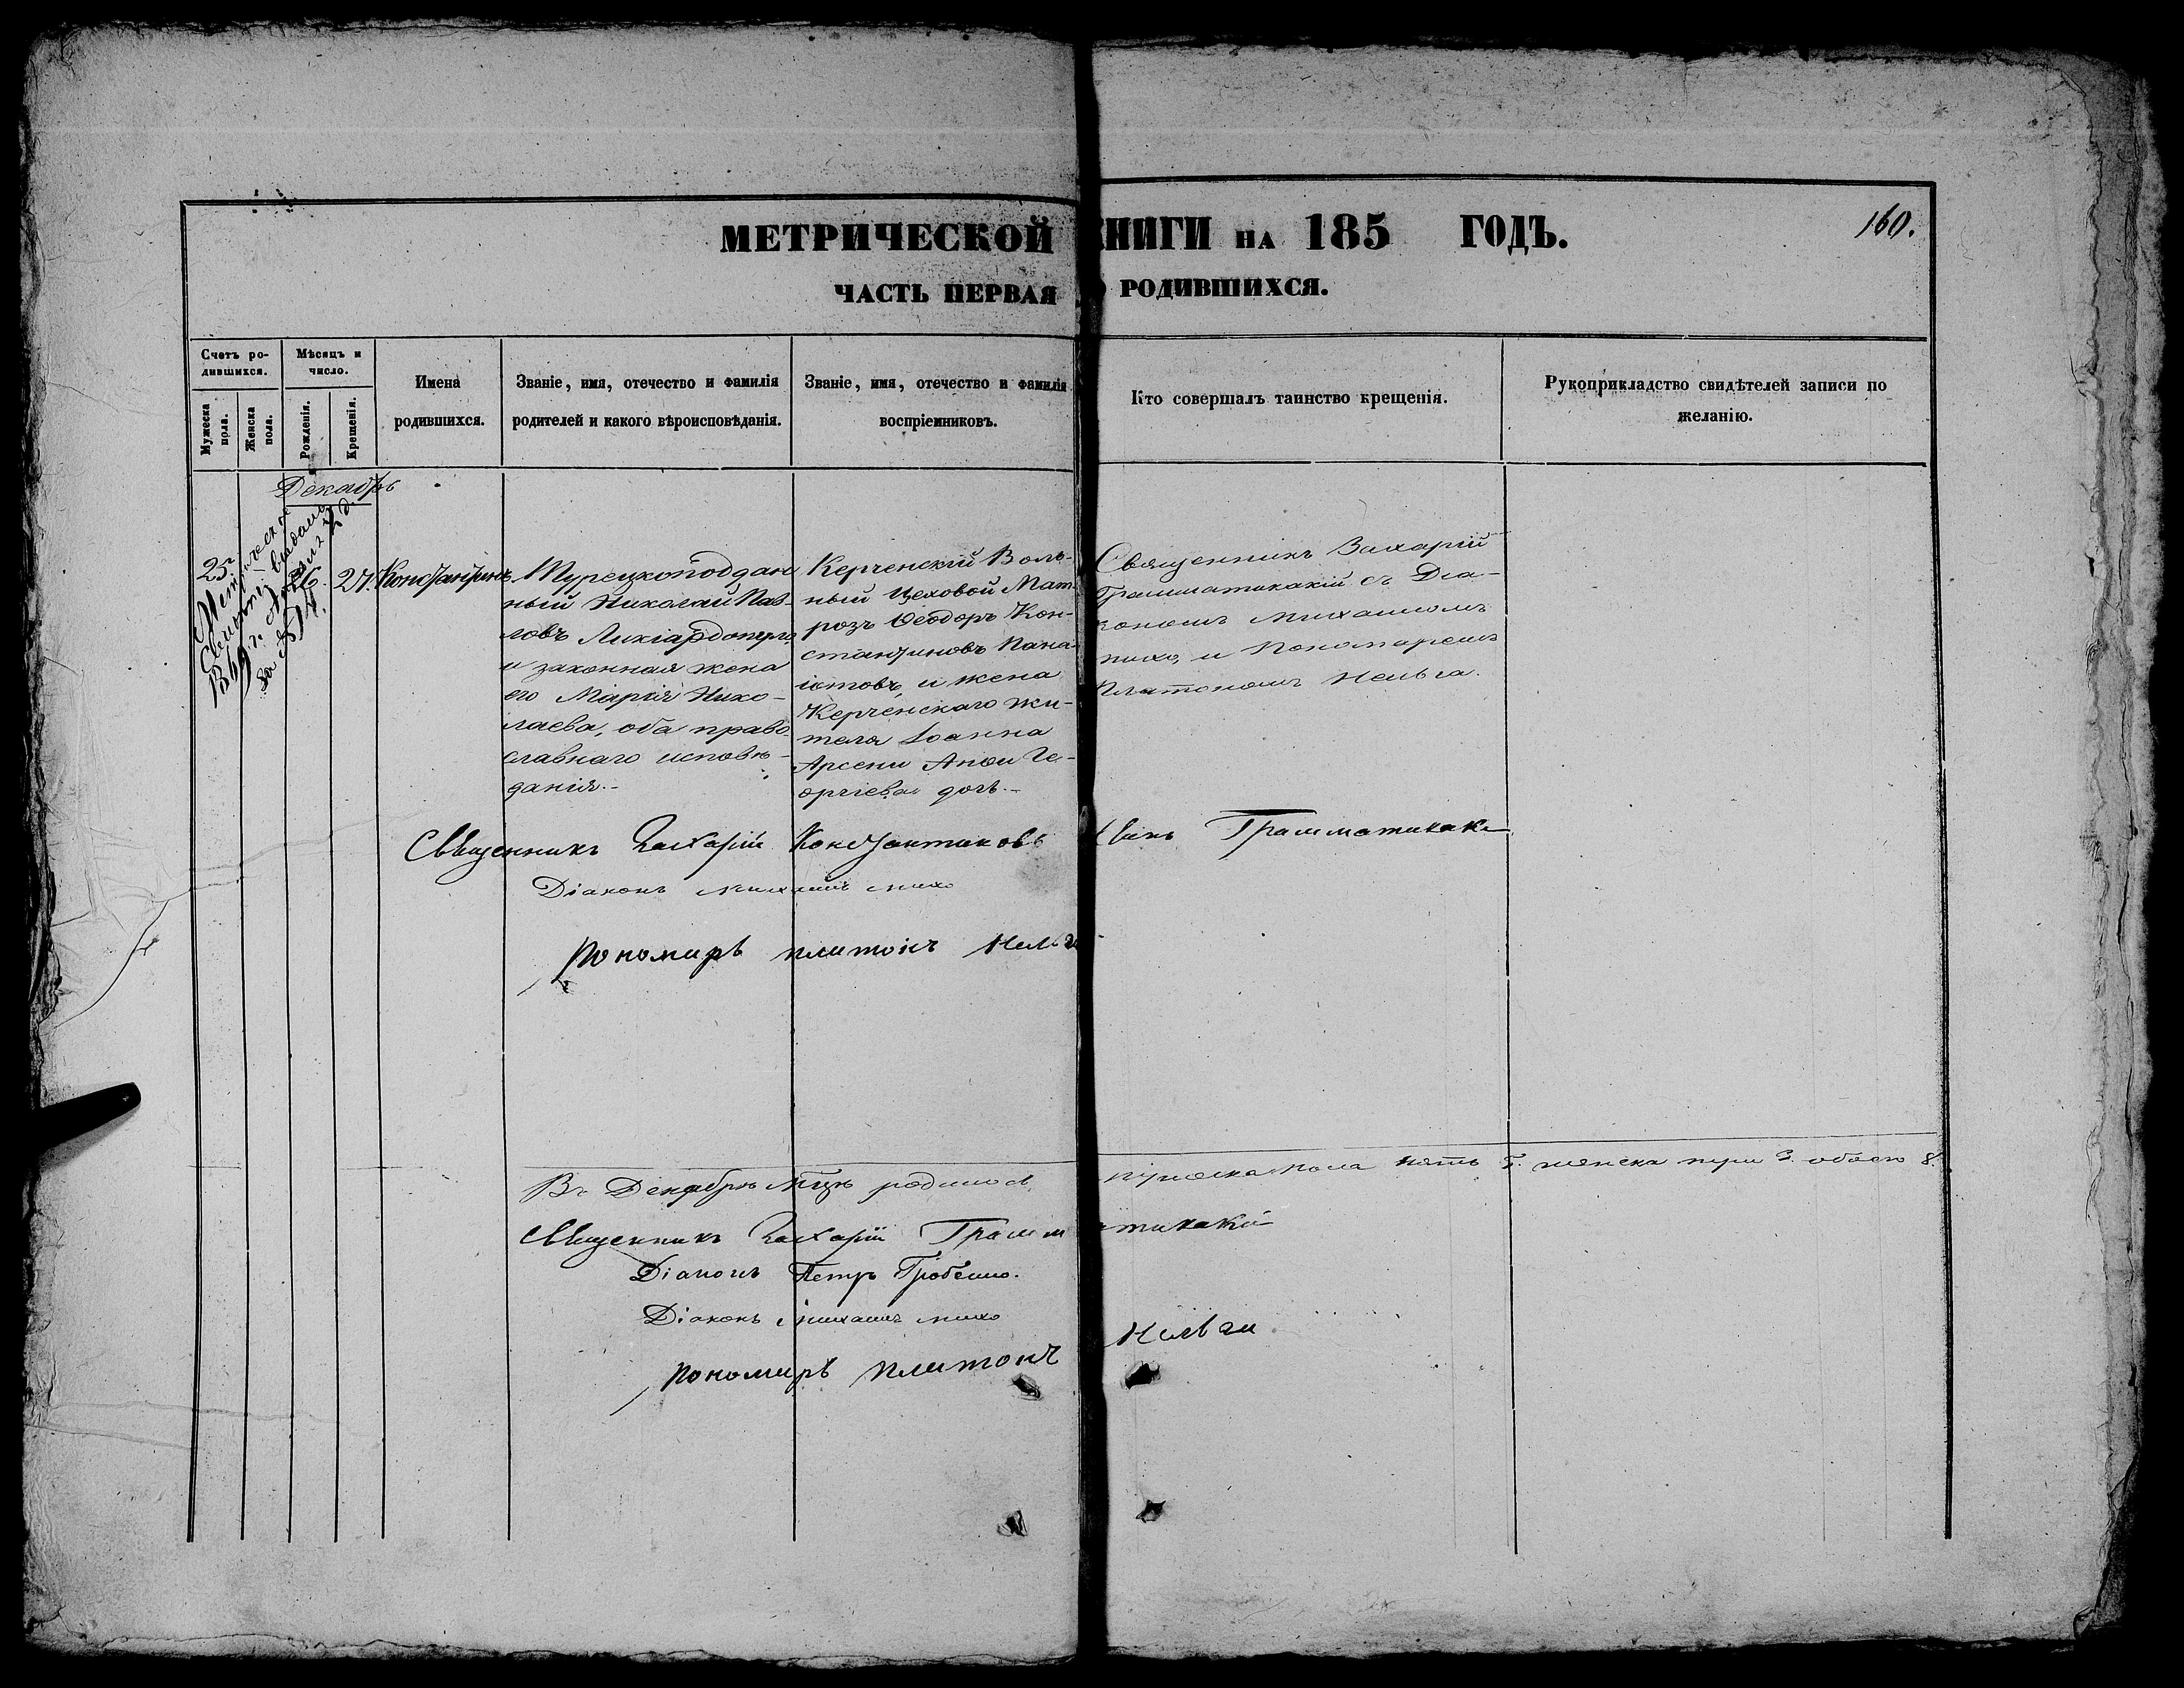 МЕТРИЧЕСКОЙ КНИГИ НА 185 ГОДЪ.
160.
ЧАСТЬ ПЕРВАЯ О РОДИВШИХСЯ.
Счетъ ро-
дившихся.
Мужеска
пола.
Женска
пола.
Мѣсяцъ и
число.
Рожденія.
Крещенія.
Имена
родившихся.
Званіе, имя, отечество и фамилія
родителей и какого вѣроисповѣданія.
Званіе, имя, отечество и фамилія
воспріемниковъ.
Кто совершалъ таинство крещенія.
Рукоприкладство свидѣтелей записи по
желанію.
Декабрь
25
26.
27.
Константинъ
Турецкоподдан
ный Николай Пав-
ловъ Ликіардопуло,
и законная жена
его Марія Нико-
лаева, оба право-
славнаго исповѣ-
данія.-
Керченскій Воль-
ный Цеховой Мат-
розъ Ѳеодоръ Кон-
стантиновъ Пана-
іотовъ, и жена
Керченскаго жи-
теля Іоанна
Арсени Ге-
оргіева дочь.-
Священникъ Захарій
Грамматикакій съ Діа-
кономъ Михаиломъ
Михо, и Пономаремъ
Платономъ
Священникъ Захарій Грамматикаки
Діаконъ Михаилъ Михо
Пономарь Платонъ
Въ Декабрѣ Мцѣ родилось мужеска пола пять 5. женска три 3. обоего 8.
Священникъ Захарій Грамматикакій
Діаконъ Петръ
Діаконъ Михаилъ Михо
Пономарь Платонъ